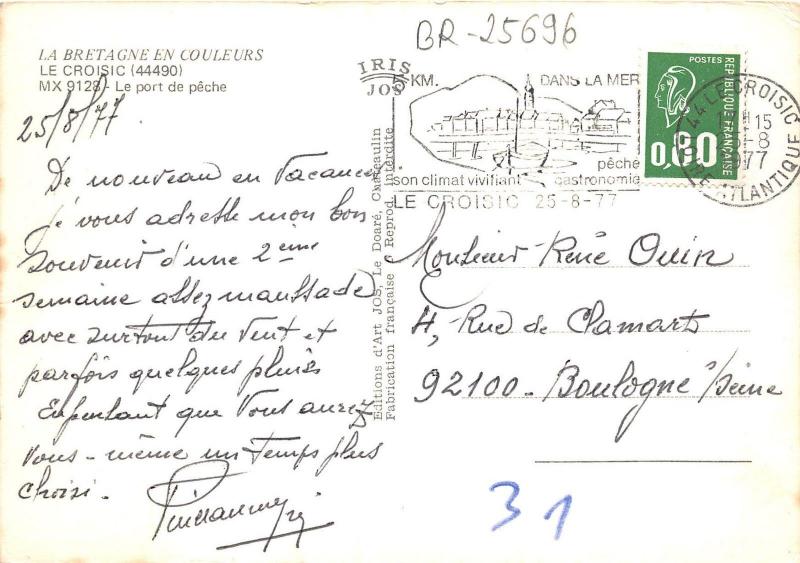 BR-25696
LA BRETAGNE EN COULEURS
LE CROISIC (44490)
MX 9128 - Le port de pêche
IRIS
JOS
25/8/77
De nouveau en Vacances
je vous adresse mon bon
souvenir d'une 2ème
semaine assez maussade
avec surtout du vent et
parfois quelques pluies
Espérant que vous aurez
vous-même un temps plus
choisi.
Editions d'Art JOS, Le Doaré, Châteaulin
Fabrication française - Reprod. interdite
5 KM. DANS LA MER
pêche
son climat vivifiant gastronomie
LE CROISIC 25-8-77
POSTES
REPUBLIQUE FRANÇAISE
0,80
44 LE CROISIC
15
-8
77
LOIRE ATLANTIQUE
Monsieur René Ouin
4, Rue de Clamart
92100 - Boulogne s/Seine
31